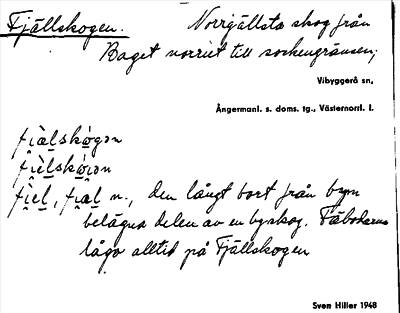 Fjällskogen. Norrgällsta skog från
Baget norrut till sockengränsen;
Vibyggerå sn,
Ångermanl. s. doms. tg., Västernorrl. l.
fi̯àlskó̱gən
fi̯èlskó̱i̯ən
fi̯el, fi̯al n., den långt bort från byn
belägna delen av en byskog. Fäbodarna
lågo alltid på Fjällskogen
Sven Hiller 1948